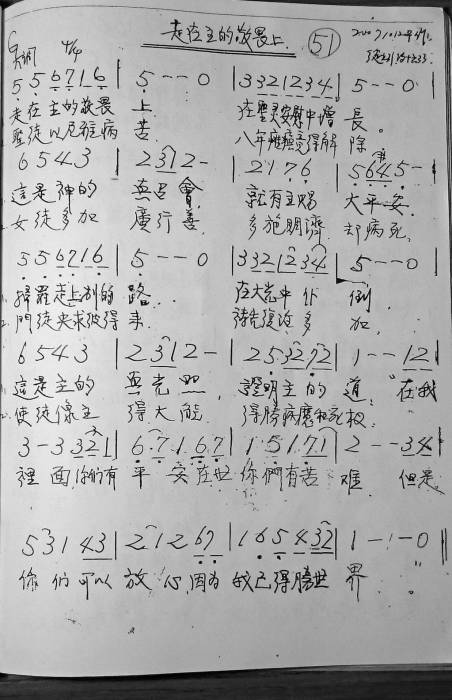 走在主的敬畏上 (51)
G調 4/4
5 5 6 7 1 6 | 5 - - 0 | 3 3 2 1 2 3 4 | 5 - - 0
走在主的敬畏 上 在聖灵安慰中增 長
聖徒以尼雅病 苦 八年癱瘓竟得解 除
6 5 4 3 | 2 3 1 2 - | 2 1 7 6 | 5 6 4 5 -
這是神的 真召會 就有主賜 大平安
女徒多加 廣行善 多施賙濟 却病死
5 5 6 7 1 6 | 5 - - 0 | 3 3 2 1 2 3 4 | 5 - - 0
掃羅走上別的 路 在大光中仆 倒
門徒央求彼得 來 禱告復活多 加
6 5 4 3 | 2 3 1 2 - | 2 5 3 2 7 2 | 1 - - 1 2
這是主的 真光照 證明主的 道 在我
使徒像主 得大能 得勝病魔和死权
3 - 3 3 2 1 | 6 7 1 6 7 | 1 5 1 7 1 | 2 - - 3 4
裡面你們有 平安在世 你們有苦 难 但是
5 3 1 4 3 | 2 1 2 6 7 | 1 6 5 4 3 2 | 1 - - 0
你們可以 放心因為 我已得勝世 界